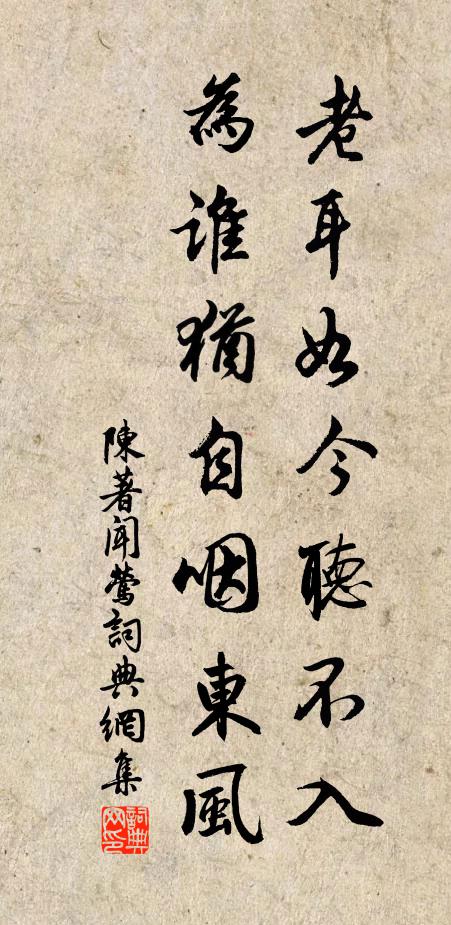 老耳如今聽不入
為誰猶自咽東風
陳著聞鶯詞典網集
詞典網印